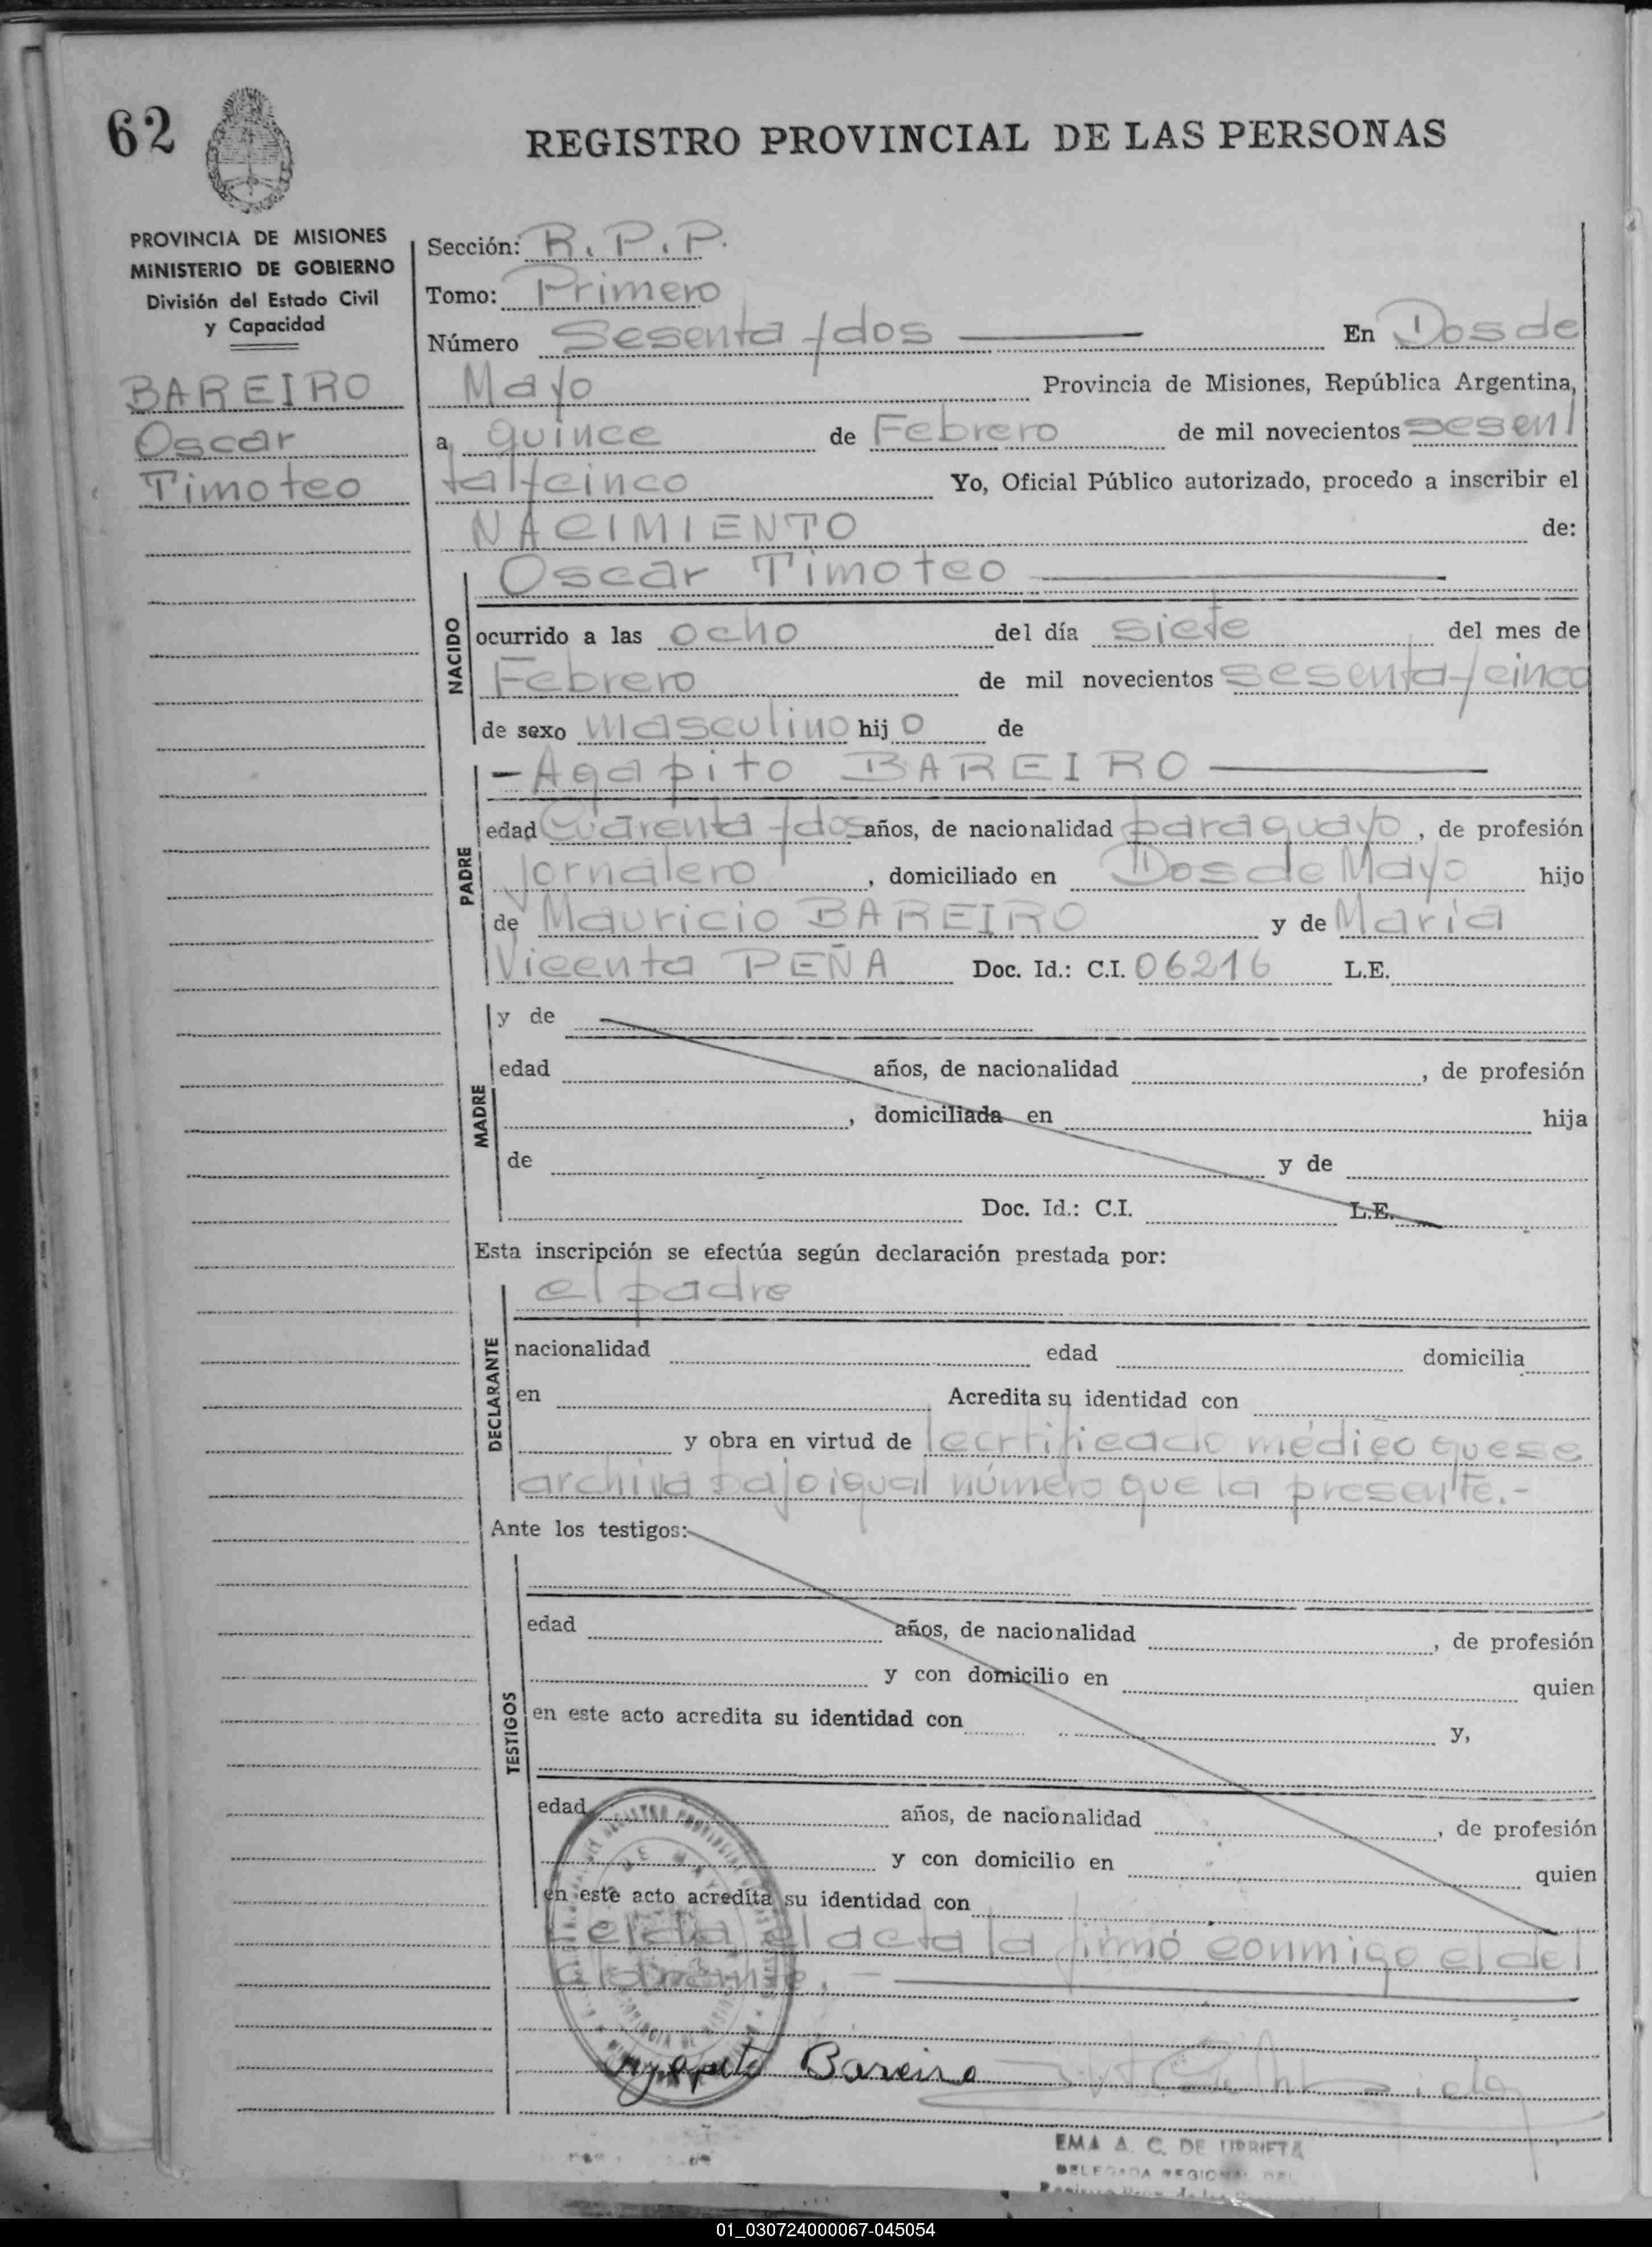 62
REGISTRO PROVINCIAL DE LAS PERSONAS
PROVINCIA DE MISIONES
MINISTERIO DE GOBIERNO
División del Estado Civil
y Capacidad
BAREIRO
Oscar
Timoteo
Sección: R.P.P.
Tomo: Primero
Número Sesenta y dos En Dos de
Mayo Provincia de Misiones, República Argentina,
a quince de Febrero de mil novecientos sesen/
ta y cinco Yo, Oficial Público autorizado, procedo a inscribir el
NACIMIENTO de:
NACIDO
Oscar Timoteo
ocurrido a las ocho del día siete del mes de
Febrero de mil novecientos sesenta y cinco
de sexo masculino hijo de
PADRE
- Agapito BAREIRO
edad Cuarenta y dos años, de nacionalidad paraguayo, de profesión
jornalero, domiciliado en Dos de Mayo hijo
de Mauricio BAREIRO y de María
Vicenta PEÑA Doc. Id.: C.I. 06216 L.E.
MADRE
y de
edad años, de nacionalidad , de profesión
, domiciliada en hija
de y de
Doc. Id.: C.I. L.E.
Esta inscripción se efectúa según declaración prestada por:
DECLARANTE
el padre
nacionalidad edad domicilia
en Acredita su identidad con
y obra en virtud de certificado médico que se
archiva bajo igual número que la presente.-
Ante los testigos:
TESTIGOS
edad años, de nacionalidad , de profesión
y con domicilio en quien
en este acto acredita su identidad con y,
edad años, de nacionalidad , de profesión
y con domicilio en quien
en este acto acredita su identidad con
Leída el acta la firmó conmigo el de/
clarante.-
Agapito Bareiro
EMA A. C. DE URRIETA
DELEGADA REGIONAL DEL
01_030724000067-045054